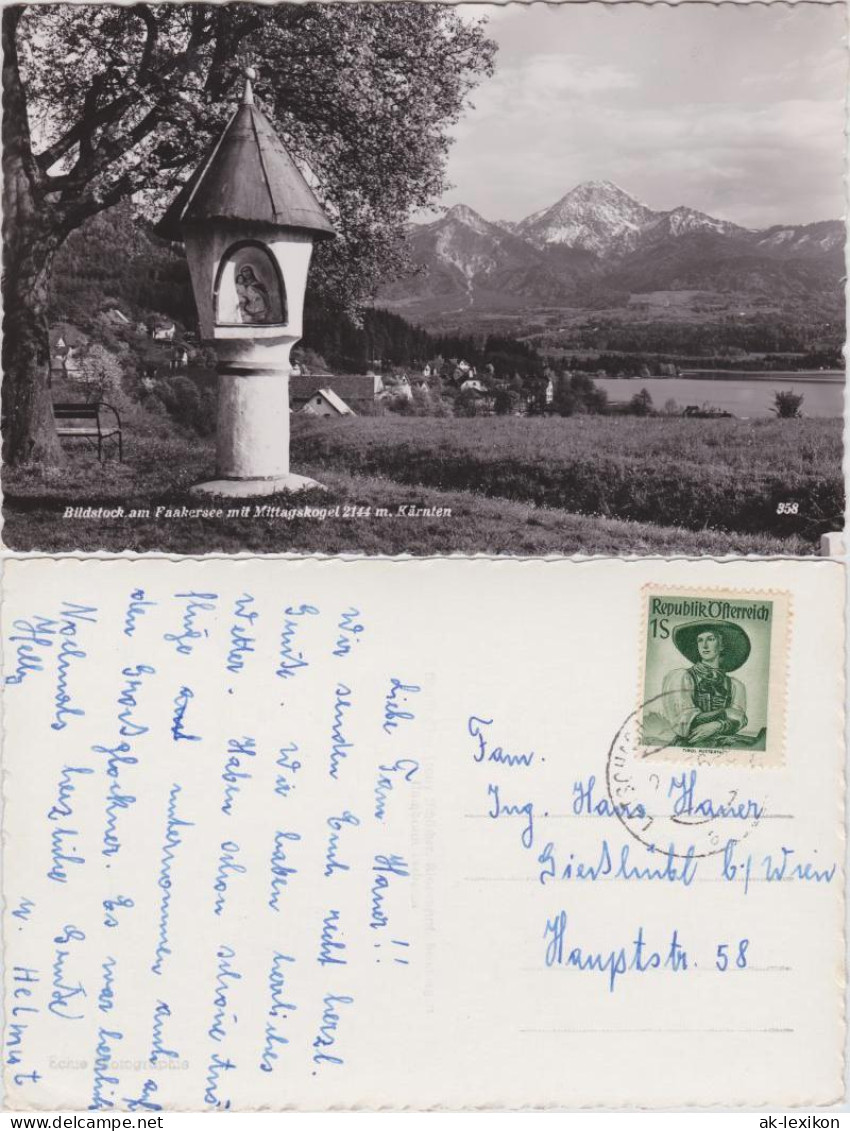 Bildstock am Faakersee mit Mittagskogel 2144 m. Kärnten
358
Liebe Fam Hauer!!
Wir senden Euch recht herzl.
Grüße. Wir haben herrliches
Wetter. Haben schon schöne Aus
flüge unternommen auch auf
den Großglockner. Es war herrlich
Nochmals herzliche Grüße
Helly u. Helmut
Echte Photographie
Republik Österreich
1S
Fam.
Ing. Hans Hauer
Gießhübl b/ Wien
Hauptstr. 58
ak-lexikon.com